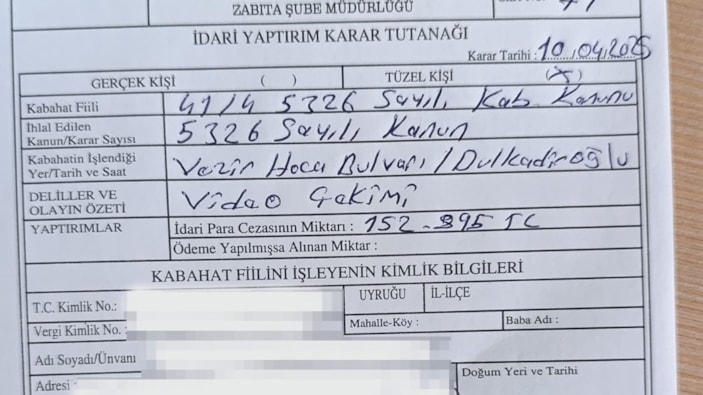 ZABITA ŞUBE MÜDÜRLÜĞÜ
İDARİ YAPTIRIM KARAR TUTANAĞI
Karar Tarihi : 10.04.2025
GERÇEK KİŞİ ( ) TÜZEL KİŞİ (X)
Kabahat Fiili 41/4 5326 Sayılı Kab Kanunu
İhlal Edilen
Kanun/Karar Sayısı 5326 Sayılı Kanun
Kabahatin İşlendiği
Yer/Tarih ve Saat Vezir Hoca Bulvarı / Dulkadiroğlu
DELİLLER VE
OLAYIN ÖZETİ Vidao Çekimi
YAPTIRIMLAR İdari Para Cezasının Miktarı : 152.895 TC
Ödeme Yapılmışsa Alınan Miktar :
KABAHAT FİİLİNİ İŞLEYENİN KİMLİK BİLGİLERİ
T.C. Kimlik No.: UYRUĞU İL-İLÇE
Vergi Kimlik No. : Mahalle-Köy : Baba Adı :
Adı Soyadı/Ünvanı
Doğum Yeri ve Tarihi
Adresi :